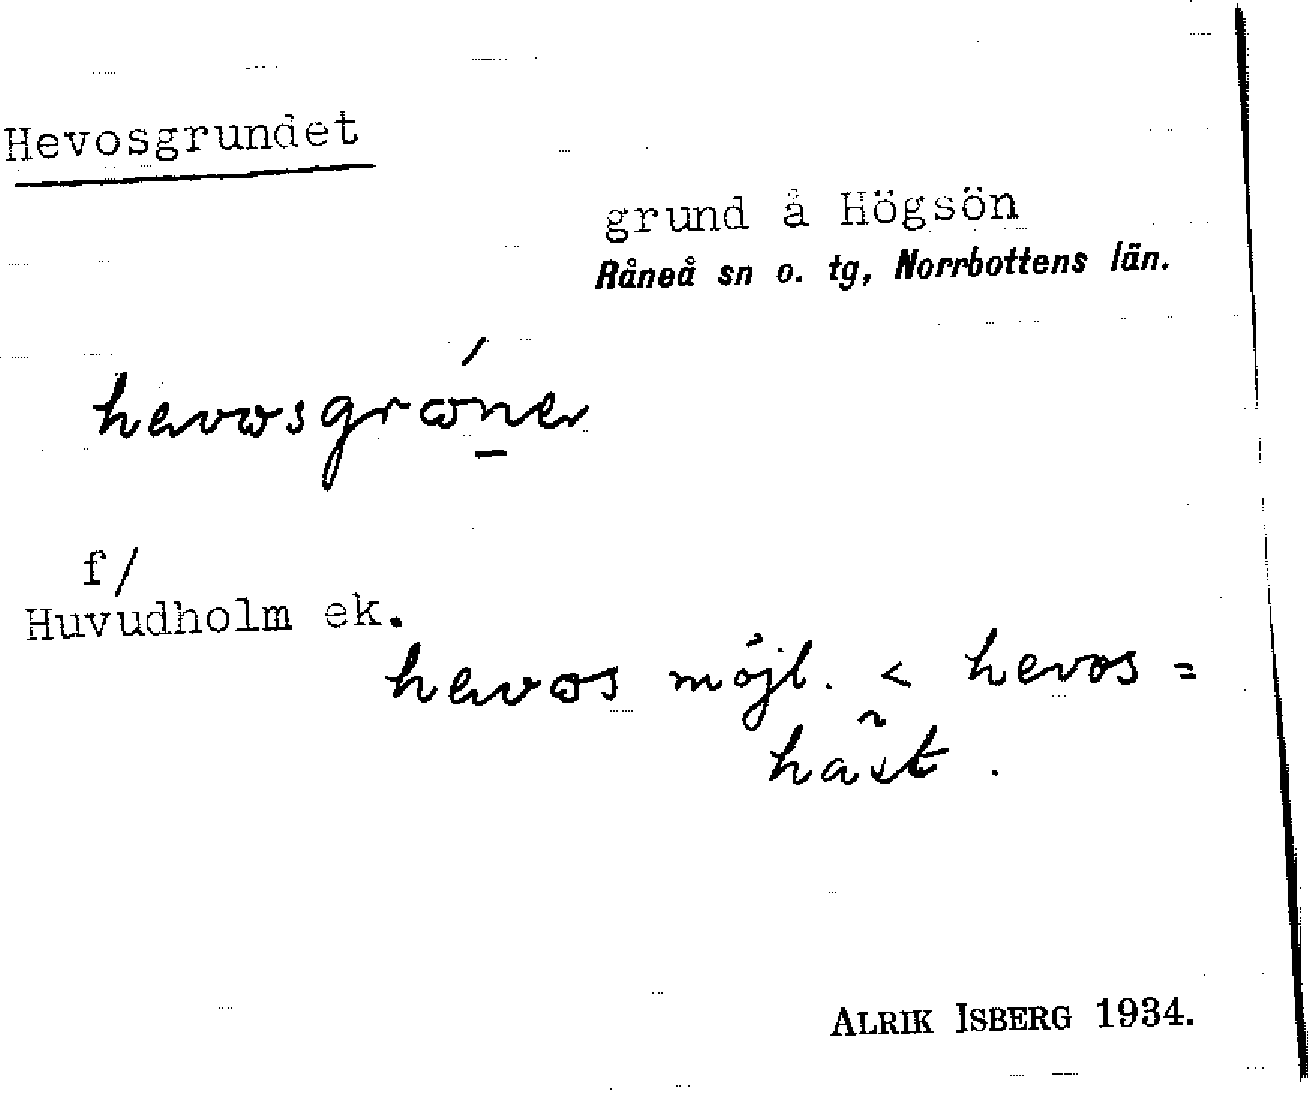 Hevosgrundet
grund å Högsön
Råneå sn o. tg, Norrbottens län.
hevosgrώner
f/
Huvudholm ek.
hevos möjl. < hevos =
häst.
ALRIK ISBERG 1934.